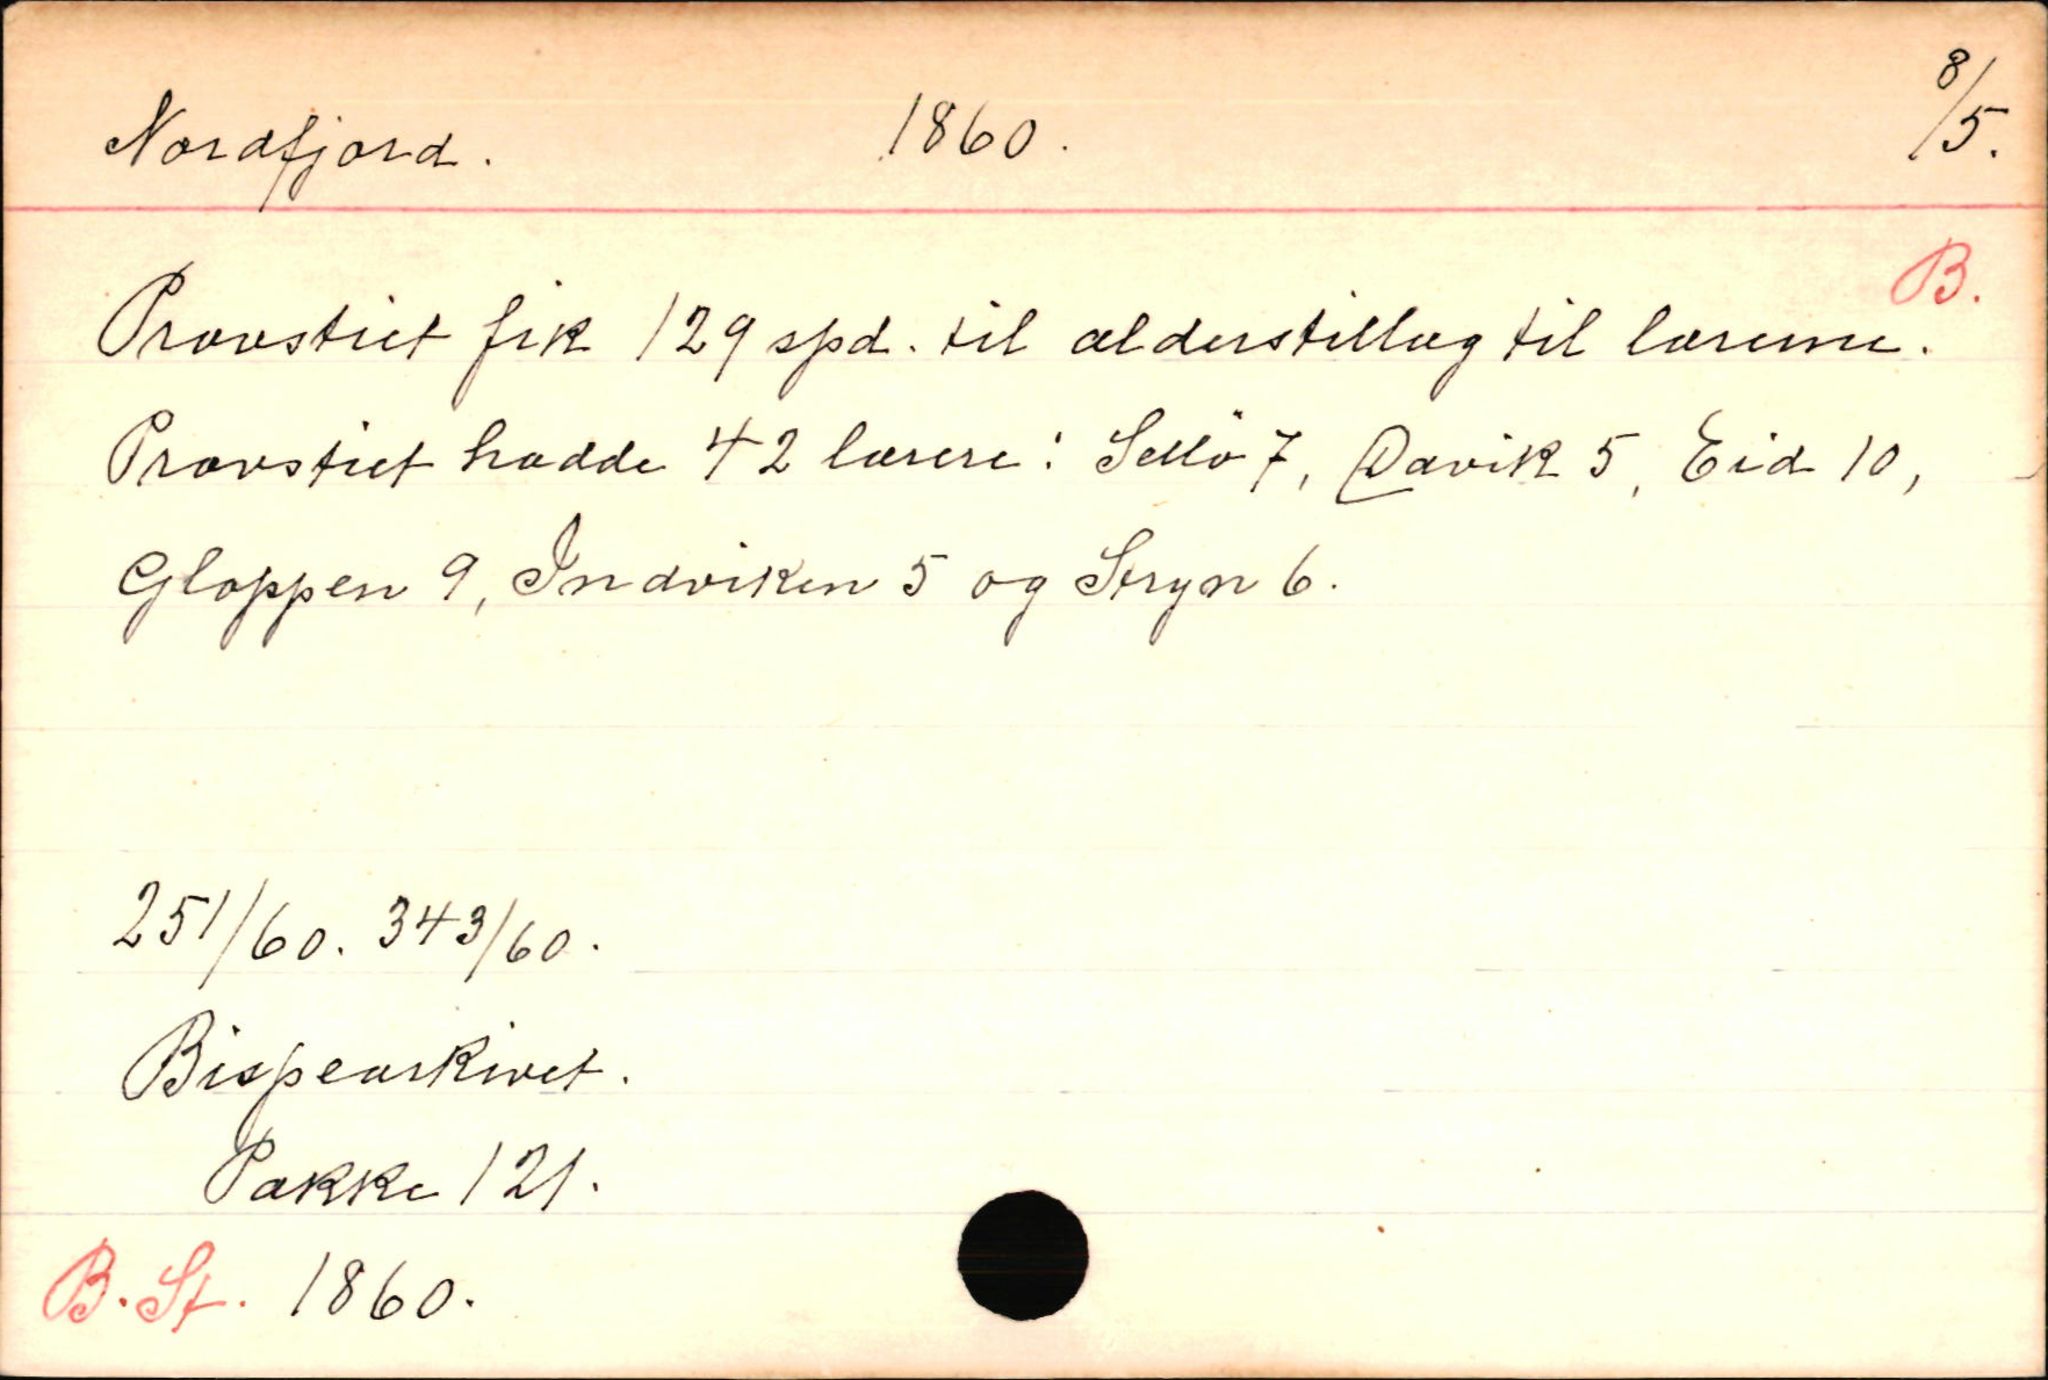 Nordfjord. 1860. 8/5.
B.
Provstiet fik 129 spd. til alderstillæg til lærerne.
Provstiet hadde 42 lærere: Sellö 7, Davik 5, Eid 10,
Gloppen 9, Indviken 5 og Stryn 6.
251/60. 343/60.
Bispearkivet.
Pakke 121.
B. St. 1860.